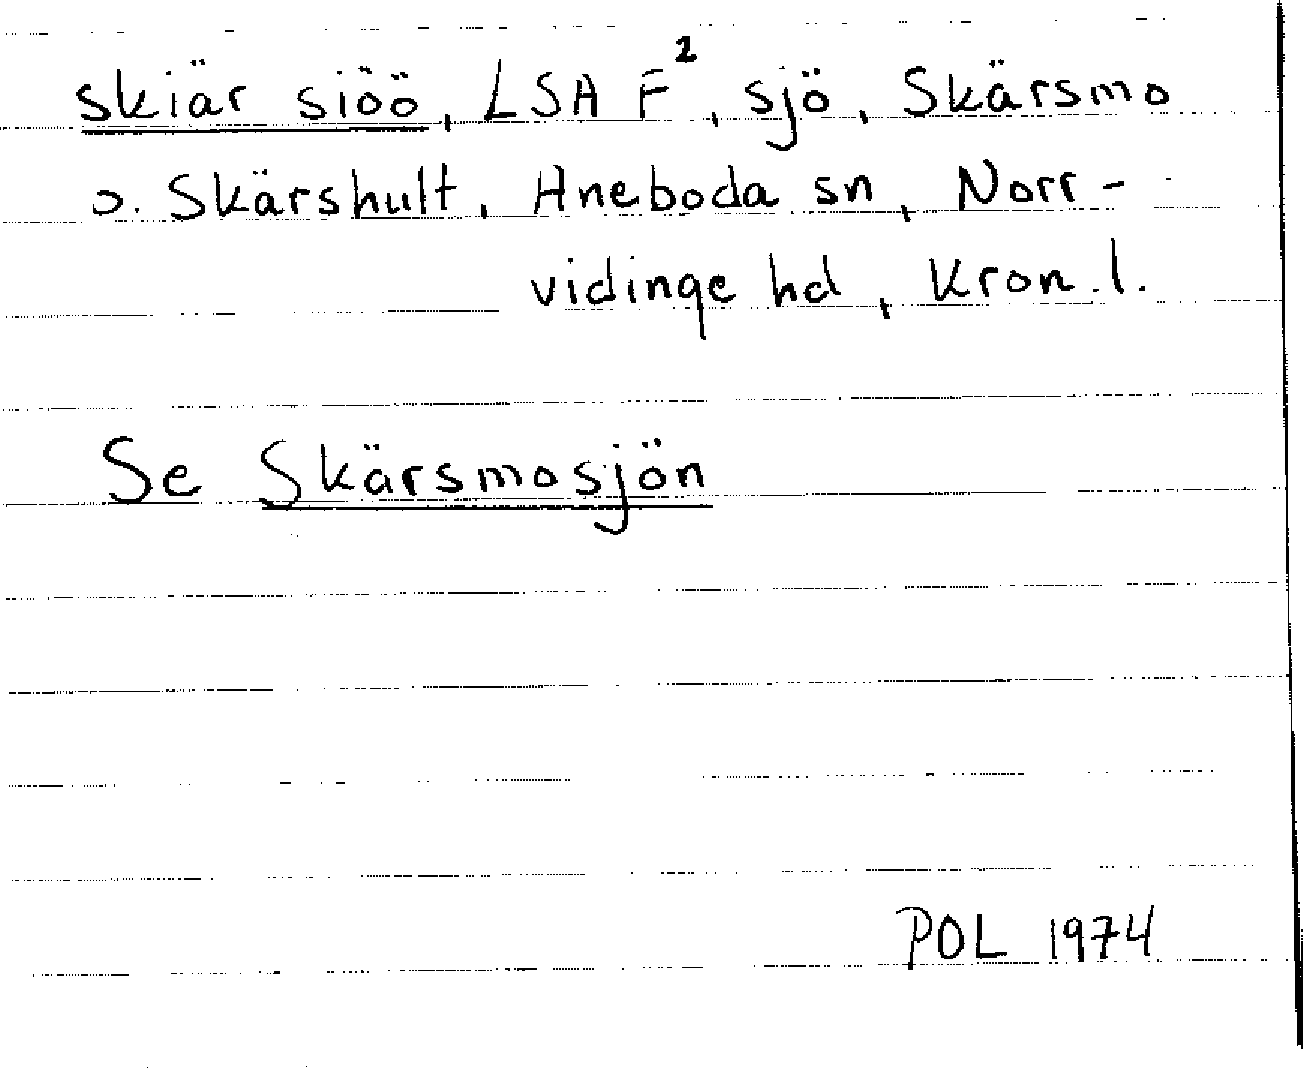 skiär siöö, LSA F², sjö, Skärsmo
o. Skärshult, Aneboda sn, Norr-
vidinge hd, Kron.l.
Se Skärsmosjön
POL 1974